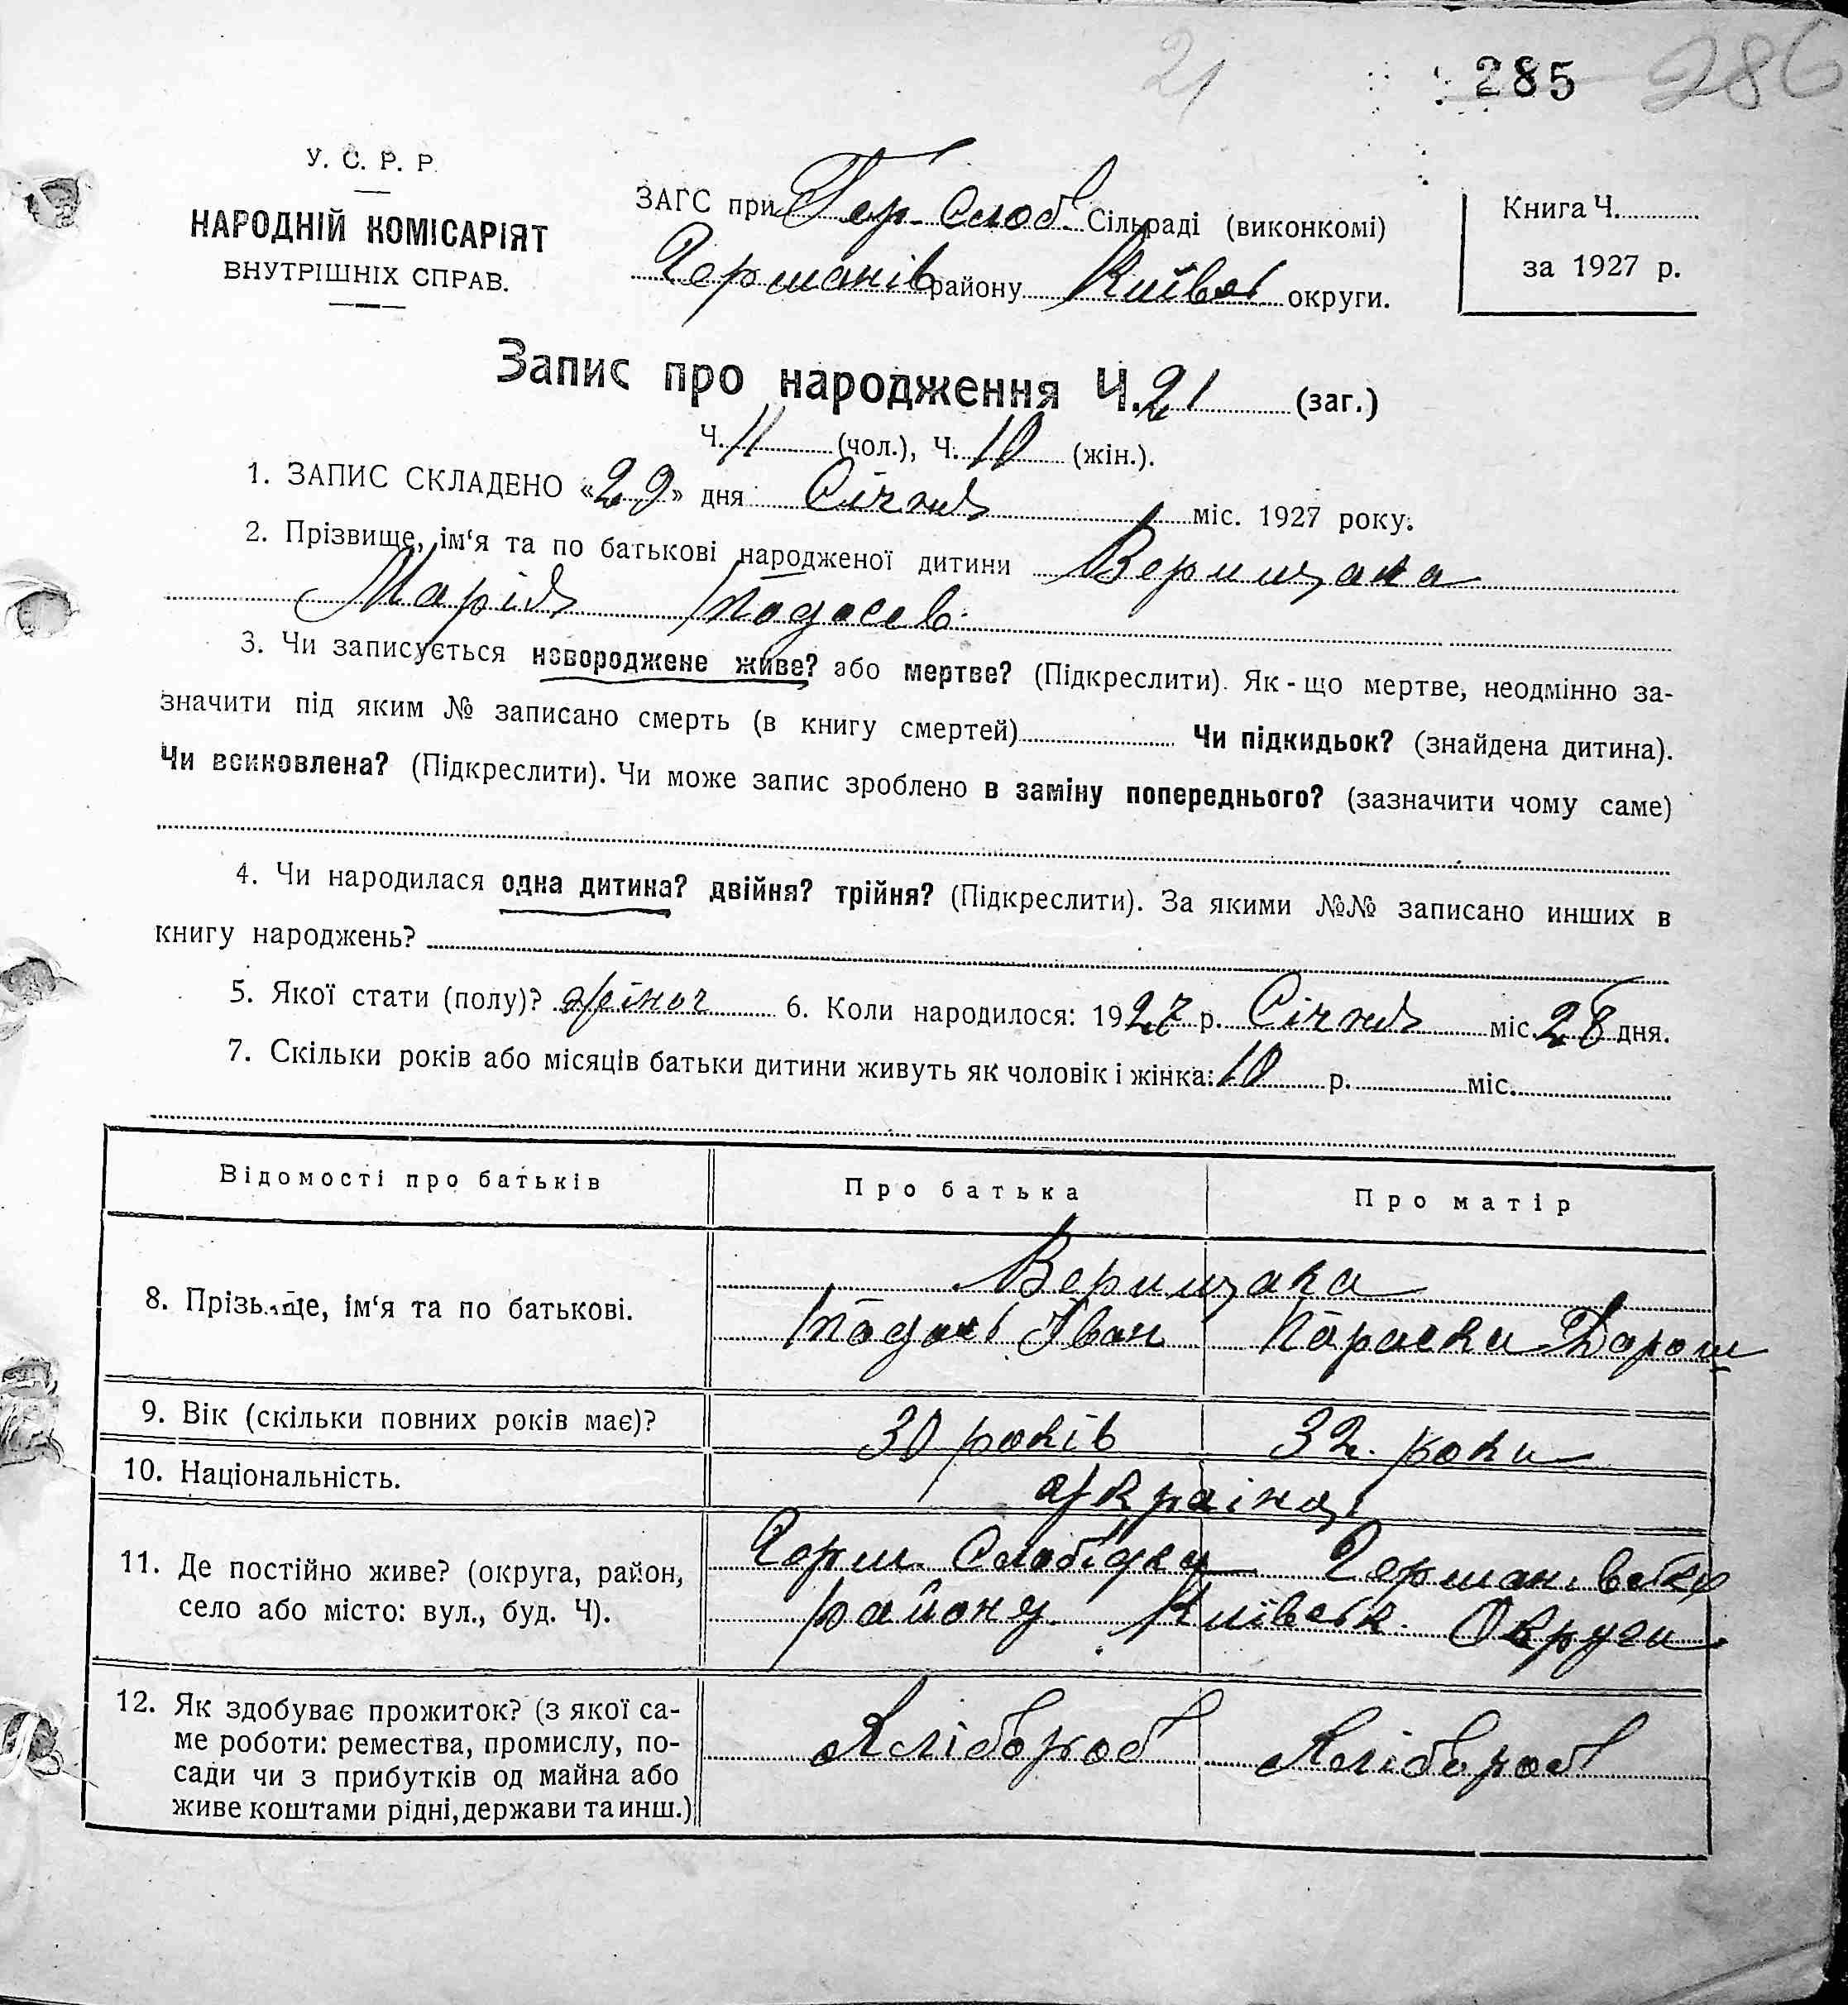 21 285 286
У. С. Р. Р.
НАРОДНІЙ КОМІСАРІЯТ
ВНУТРІШНІХ СПРАВ.
ЗАГС при Гер. Слоб. Сільраді (виконкомі)
Германів району Київськ округи.
Книга Ч.
за 1927 р.
Запис про народження Ч. 21 (заг.)
Ч. 11 (чол.), Ч. 10 (жін.).
1. ЗАПИС СКЛАДЕНО «29» дня Січня міс. 1927 року.
2. Прізвище, ім‘я та по батькові народженої дитини Верищака
Марія Тодосев.
3. Чи записується новороджене живе? або мертве? (Підкреслити). Як-що мертве, неодмінно за-
значити під яким № записано смерть (в книгу смертей) Чи підкидьок? (знайдена дитина).
Чи всиновлена? (Підкреслити). Чи може запис зроблено в заміну попереднього? (зазначити чому саме)
4. Чи народилася одна дитина? двійня? трійня? (Підкреслити). За якими №№ записано инших в
книгу народжень?
5. Якої стати (полу)? жіноч 6. Коли народилося: 1927 р. Січня міс. 28 дня.
7. Скільки років або місяців батьки дитини живуть як чоловік і жінка: 10 р. міс.
Відомості про батьків Про батька Про матір
8. Прізвище, ім‘я та по батькові.
Верищака
Тодось Іван Параска Дорош
9. Вік (скільки повних років має)? 30 років 32 роки
10. Національність. україній
11. Де постійно живе? (округа, район,
село або місто: вул., буд. Ч).
Герм. Слобідка Германівськ
району Київськ. Округи
12. Як здобуває прожиток? (з якої са-
ме роботи: ремества, промислу, по-
сади чи з прибутків од майна або
живе коштами рідні, держави та инш.)
Хлібороб Хлібороб